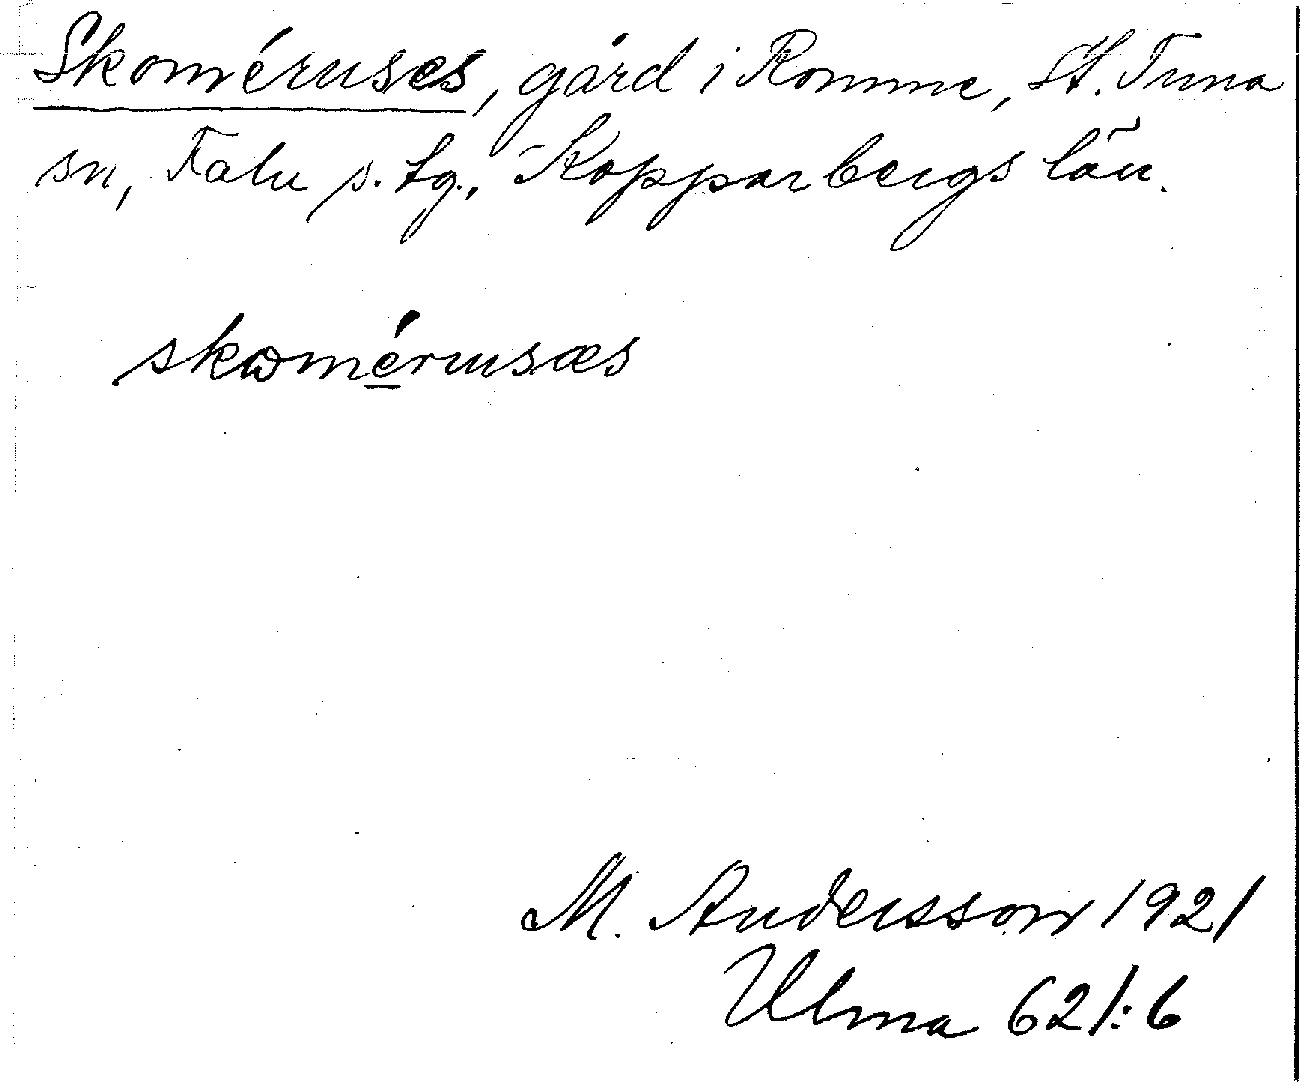 Skoméruses, gård i Romme, St. Tuna
sn, Falu s. tg., Kopparbergs län.
skωmérusæs
M. Andersson 1921
Ulma 621:6